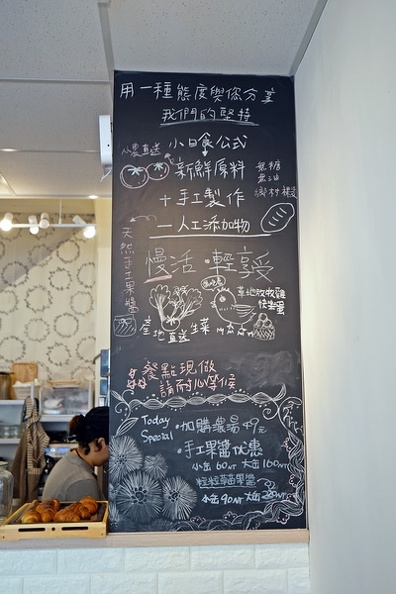 用一種態度與你分享
我們的堅持
小日食公式
小農直送
新鮮原料
無糖
無油
鄉村麵
+ 手工製作
一人工添加物
天然手工果醬
慢活・輕享受
草地放牧雞
快樂蛋
產地直送生菜
餐點現做
請耐心等候
Today
Special
・加購濃湯49元
・手工果醬优惠
小缶60NT 大缶160NT
粒粒草莓果醬
小缶90NT